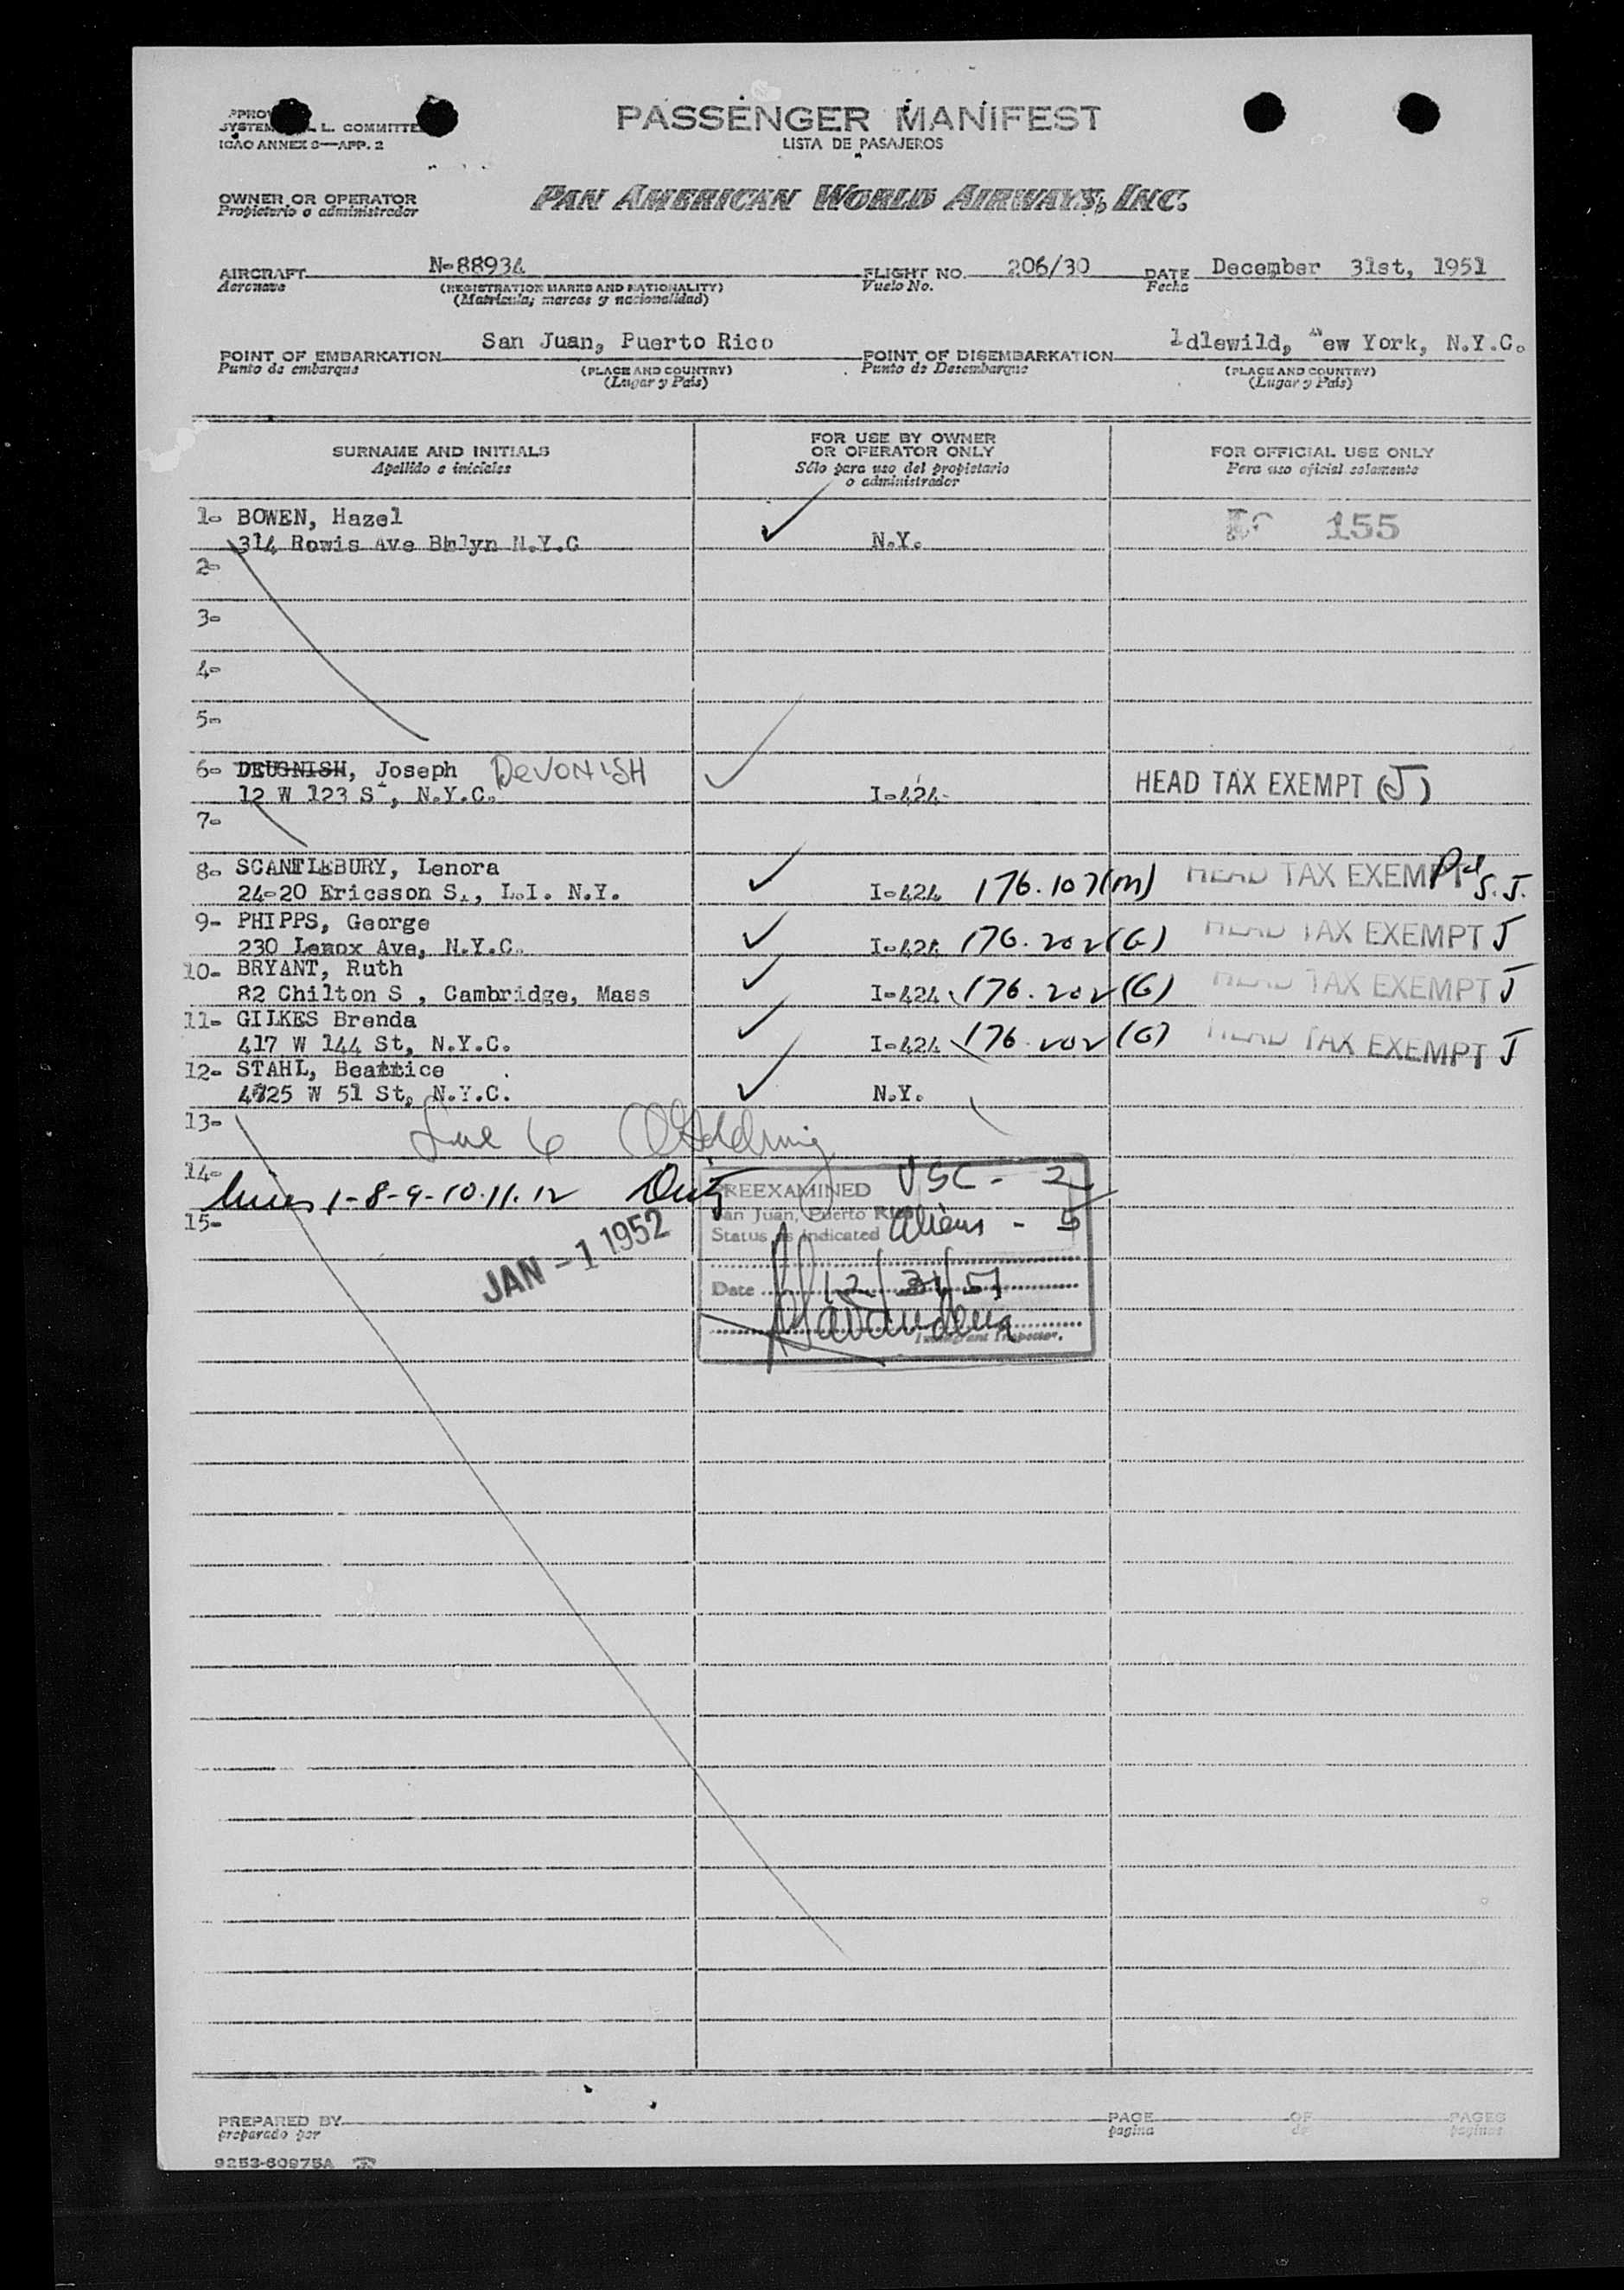 PASSENGER MANIFEST
LISTA DE PASAJEROS
L. COMMITTEE
ICAO ANNEX 9—APP. 2
OWNER OR OPERATOR
Propietario o administrador
PAN AMERICAN WORLD AIRWAYS, INC.
AIRCRAFT N-88934 FLIGHT NO. 206/30 DATE December 31st, 1951
Aeronave (REGISTRATION MARKS AND NATIONALITY) Vuelo No. Fecha
(Matrícula; marcas y nacionalidad)
POINT OF EMBARKATION San Juan, Puerto Rico POINT OF DISEMBARKATION Idlewild, New York, N.Y.C.
Punto de embarque (PLACE AND COUNTRY) Punto de Desembarque (PLACE AND COUNTRY)
(Lugar y País) (Lugar y País)
SURNAME AND INITIALS FOR USE BY OWNER OR OPERATOR ONLY FOR OFFICIAL USE ONLY
Apellido e iniciales Sólo para uso del propietario o administrador Para uso oficial solamente
1- BOWEN, Hazel 155
314 Rowis Ave Bklyn N.Y.C N.Y.
2-
3-
4-
5-
6- DEUGNISH, Joseph DEVONISH HEAD TAX EXEMPT (J)
12 W 123 St, N.Y.C. I-424
7-
8- SCANTLEBURY, Lenora HEAD TAX EXEMPT Pd S.J.
24-20 Ericsson S., L.I. N.Y. I-424 176.107(m)
9- PHIPPS, George HEAD TAX EXEMPT J
230 Lenox Ave, N.Y.C. I-424 176.202(G)
10- BRYANT, Ruth HEAD TAX EXEMPT J
82 Chilton S , Cambridge, Mass I-424 176.202(G)
11- GILKES Brenda HEAD TAX EXEMPT J
417 W 144 St, N.Y.C. I-424 176.202(G)
12- STAHL, Beatrice
4725 W 51 St, N.Y.C. N.Y.
13-
Line 6 Golding
14-
Lines 1-8-9-10.11.12
15-
JAN -1 1952
PREEXAMINED USC - 2
San Juan, Puerto Rico Aliens - 5
Status as indicated
Date 12/31/51
Immigrant Inspector.
PREPARED BY PAGE OF PAGES
preparado por pagina de paginas
9253-60975A